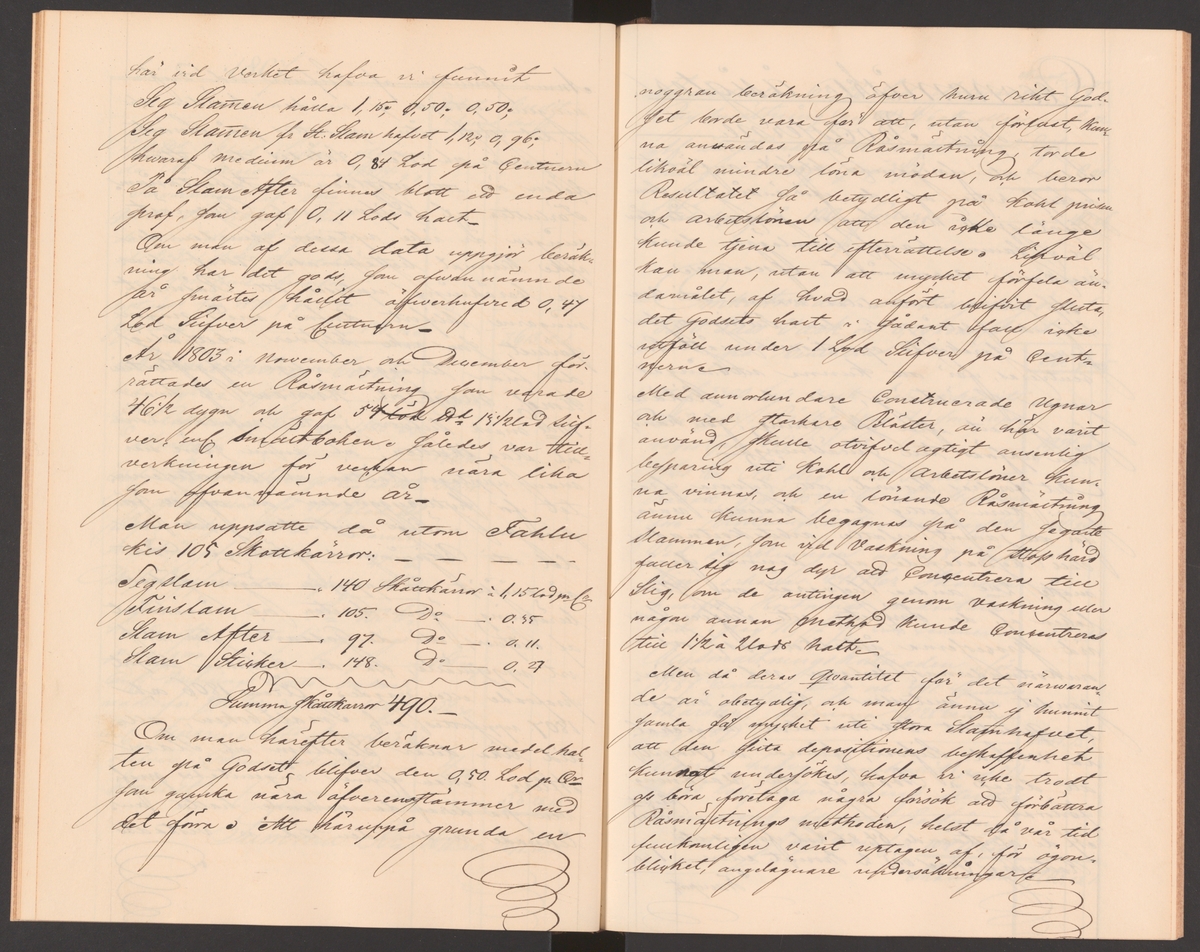 här vid verket hafva vi funnit
Seg Slam̄en hålla 1,15; 0,50; 0,50;
Seg Slam̄en fr St. Slam hafvet 1,12; 0,96;
hwaraf medium är 0,84 Lod på Centnern
På Slam After finnes blott ett enda
prof, som gaf 0,11 Lods halt.
Om man af dessa data uppgjör beräk-
ning har det gods, som ofwannämnde
år smältes hållit öfverhufvud 0,47
Lod Silfver på Centnern
År 1803 i November och December för-
rättades en Råsmältning som varade
46 1/2 dygn och gaf 54 18 1/2 lod Silf-
ver enl Smältboken. Således var till-
verkningen för veckan nära lika
som ofvannämnde år
Man uppsatte då utom Fahlu
kis 105 Skottkärror:
Segslam 140 Skottkärror à 1,15 lod pr Ctr
Finslam 105. Do 0.35
Slam After 97. Do 0.11.
Slam Sticker 148. Do 0.27
Summa Skottkärror 490.
Om man härefter beräknar medelhal-
ten på Godset, blifver den 0,50. Lod pr Ctr
som ganska nära öfverenstämmer med
det förra. Att häruppå grunda en
noggran beräkning öfver huru rikt God-
set borde vara för att, utan förlust, kun-
na användas på Råsmältning, torde
likväl mindre löna mödan, och beror
Resultatet så betydligt på kohl prisen
och arbetslönen att den icke länge
kunde tjena till efterrättelse. Likväl
kan man, utan att mycket förfela än-
damålet, af hvad anfört blifvit sluta,
det Godsets halt i sådant fall icke
utföll under 1 Lod Silfver på Cent-
nern
Med annorlundare Construerade Ugnar
och med starkare Bläster, än här varit
använd, skulle otvifvelagtigt ansenlig
besparing uti Kohl och Arbetslöner kun-
na vinnas, och en lönande Råsmältning
ännu kunna begagnas på den Segaste
Slammen, som vid Vaskning på Stosshärd
faller sig nog dyr att Concentrera till
Slig, om de antingen genom vaskning eller
någon annan method kunde Concentreras
till 1 1/2 à 2 lods halt.
Men då deras Qvantitet för det närwaran-
de är obetydlig, och man ännu ej hunnit
samla så mycket uti stora Slamhafvet
att den sista depositionens beskaffenhet
kunnat undersökas, hafva vi icke trodt
oss böra företaga några försök att förbättra
Råsmältnings methoden, helst då vår tid
funkomligen varit uptagen af, för ögon-
blicket, angelägnare undersökningar.